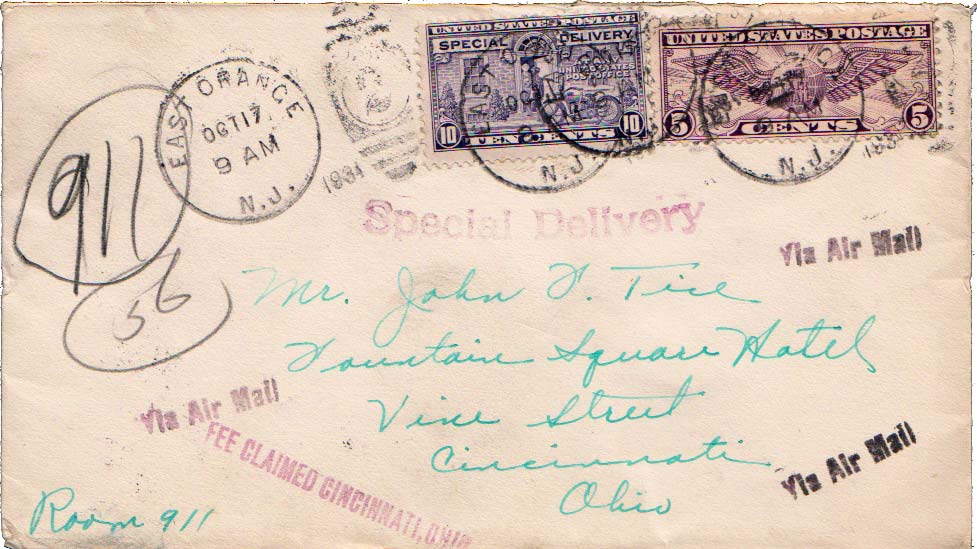 UNITED STATES POSTAGE
SPECIAL DELIVERY
10 TEN CENTS 10
UNITED STATES POSTAGE
5 CENTS 5
EAST ORANGE
OCT 17
9 AM
N.J.
1931
N.J.
N.J.
193
911
56
Special Delivery
Via Air Mail
Mr. John F. Tice
Fountain Square Hotel
Vine Street
Cincinnati
Ohio
Via Air Mail
FEE CLAIMED CINCINNATI, OHIO
Via Air Mail
Room 911